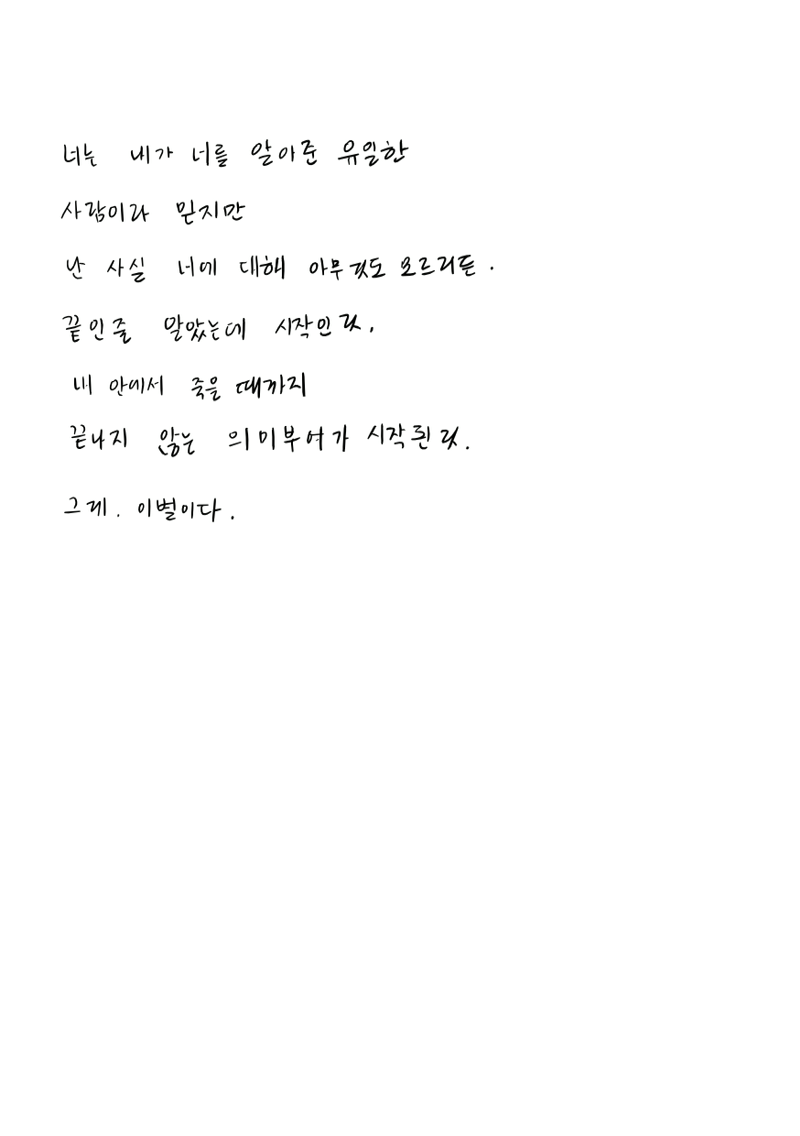 너는 내가 너를 알아준 유일한
사람이라 믿지만
난 사실 너에 대해 아무것도 모르리듯.
끝인줄 알았는데 시작인 것,
내 안에서 죽을 때까지
끝나지 않는 의미부여가 시작된 것.
그게. 이별이다.